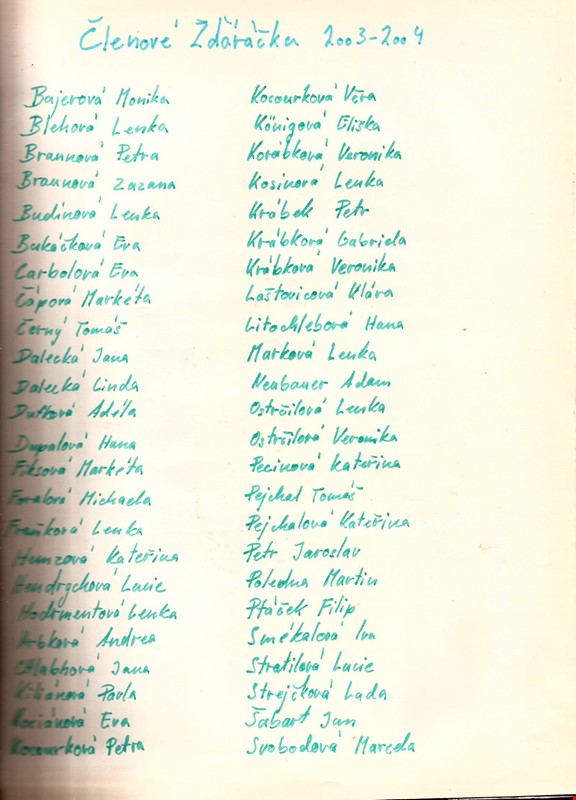 Členové Žďáráčku 2003-2004
Bajerová Monika
Blehová Lenka
Braunová Petra
Braunová Zuzana
Budínová Lenka
Bukáčková Eva
Carbolová Eva
Čápová Markéta
Černý Tomáš
Dalecká Jana
Dalecká Linda
Dufková Adéla
Dupalová Hana
Fiksová Markéta
Foralová Michaela
Fraňková Lenka
Kateřina
Hendrychová Lucie
Lenka
Hrbková Andrea
Chlabhová Jana
Kiliánová Pavla
Kociánová Eva
Kocourková Petra
Kocourková Věra
Königová Eliška
Korábková Veronika
Kosinová Lenka
Krábek Petr
Krábková Gabriela
Krábková Veronika
Laštovicová Klára
Litochlebová Hana
Marková Lenka
Neubauer Adam
Ostrčilová Lenka
Ostrčilová Veronika
Pecinová Kateřina
Pejchal Tomáš
Pejchalová Kateřina
Petr Jaroslav
Poledna Martin
Ptáček Filip
Smékalová Iva
Stratilová Lucie
Strejčková Lada
Šabart Jan
Svobodová Marcela